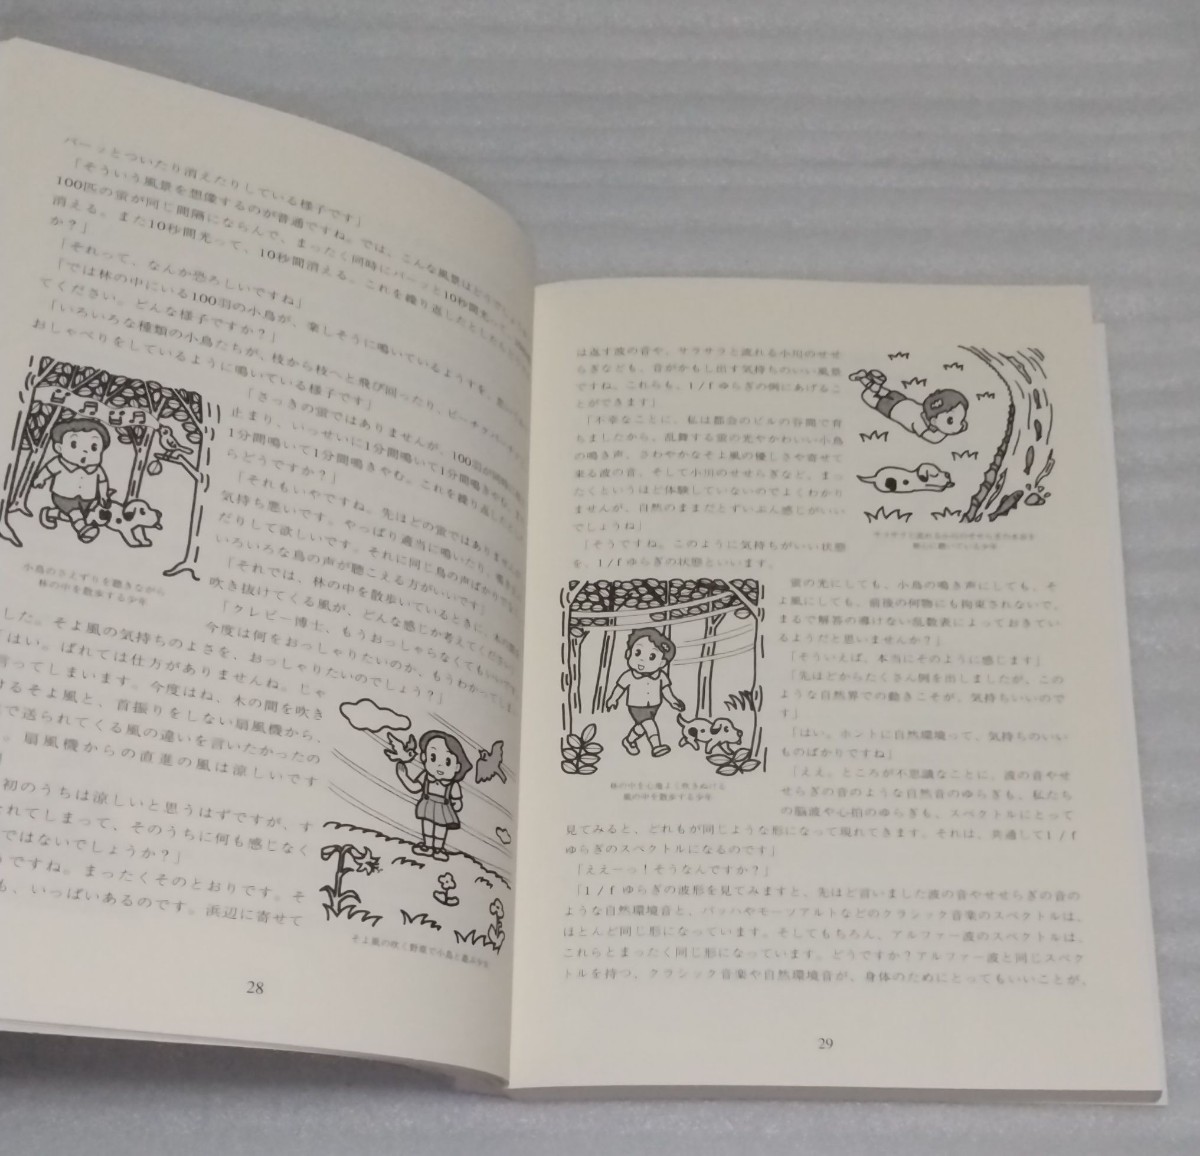 パーッとついたり消えたりしている様子です」
「そういう風景を想像するのが普通ですね。では、こんな風景はどうでしょう
100匹の蛍が同じ間隔にならんで、まったく同時にパーッと10秒間光って
消える。また10秒間光って、10秒間消える。これを繰り返したとしたら
か？」
「それって、なんか恐ろしいですね」
「では林の中にいる100羽の小鳥が、楽しそうに鳴いているようすを、
てください。どんな様子ですか？」
「いろいろな種類の小鳥たちが、枝から枝へと飛び回ったり、ピーチクパーチク
おしゃべりをしているように鳴いている様子です」
「さっきの蛍ではありませんが、100羽が同時に
止まり、いっせいに1分間鳴いて1分間鳴きやむ。
1分間鳴いて1分間鳴きやむ。これを繰り返した
らどうですか？」
「それもいやですね。先ほどの蛍ではありませんが
気持ち悪いです。やっぱり適当に鳴いたり、鳴き
だりして欲しいです。それに同じ鳥の声ばかりで
いろいろな鳥の声が聴こえる方がいいです」
「それでは、林の中を散歩しているときに、木の間を
吹き抜けてくる風が、どんな感じか考えてください」
「クレビー博士、もうおっしゃらなくてもいいです
今度は何をおっしゃりたいのか、もうわかってしまい
小鳥のさえずりを聴きながら
林の中を散歩する少年
した。そよ風の気持ちのよさを、おっしゃりたいのでしょう？」
「はい。ばれては仕方がありませんね。じゃ
言ってしまいます。今度はね、木の間を吹き
けるそよ風と、首振りをしない扇風機から、
で送られてくる風の違いを言いたかったの
。扇風機からの直進の風は涼しいです
初のうちは涼しいと思うはずですが、す
されてしまって、そのうちに何も感じなく
ではないでしょうか？」
うですね。まったくそのとおりです。そ
も、いっぱいあるのです。浜辺に寄せて
そよ風の吹く野原で小鳥と遊ぶ少年
28
は返す波の音や、サラサラと流れる小川のせせ
らぎなども、音がかもし出す気持ちのいい風景
ですね。これらも、1/fゆらぎの例にあげるこ
とができます」
「不幸なことに、私は都会のビルの谷間で育
ちましたから、乱舞する蛍の光やかわいい小鳥
の鳴き声、さわやかなそよ風の優しさや寄せて
来る波の音、そして小川のせせらぎなど、まっ
たくというほど体験していないのでよくわかり
ませんが、自然のままだとずいぶん感じがいい
でしょうね」
「そうですね。このように気持ちがいい状態
を、1/fゆらぎの状態といいます。
サラサラと流れる小川のせせらぎの水音を
熱心に聴いている少年
蛍の光にしても、小鳥の鳴き声にしても、そ
よ風にしても、前後の何物にも拘束されないで、
まるで解答の導けない乱数表によっておきてい
るようだと思いませんか？」
「そういえば、本当にそのように感じます」
「先ほどからたくさん例を出しましたが、この
ような自然界での動きこそが、気持ちいいので
す」
「はい。ホントに自然環境って、気持ちのいい
ものばかりですね」
「ええ。ところが不思議なことに、波の音やせ
せらぎの音のような自然音のゆらぎも、私たち
の脳波や心拍のゆらぎも、スペクトルにとって
林の中を心地よく吹きぬける
風の中を散歩する少年
見てみると、どれもが同じような形になって現れてきます。それは、共通して1/f
ゆらぎのスペクトルになるのです」
「ええーっ！そうなんですか？」
「1/fゆらぎの波形を見てみますと、先ほど言いました波の音やせせらぎの音の
ような自然環境音と、バッハやモーツアルトなどのクラシック音楽のスペクトルは、
ほとんど同じ形になっています。そしてもちろん、アルファー波のスペクトルは、
これらとまったく同じ形になっています。どうですか？アルファー波と同じスペク
トルを持つ、クラシック音楽や自然環境音が、身体のためにとってもいいことが、
29